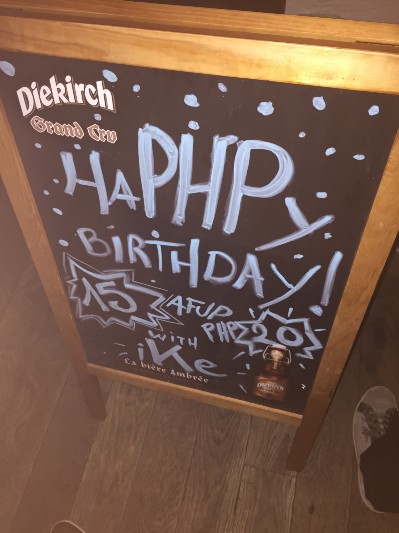 Diekirch
Grand Cru
HaPHPy
BIRTHDAY!
15 AFUP
PHP 20
WITH
iKe
La bière Ambrée
Diekirch